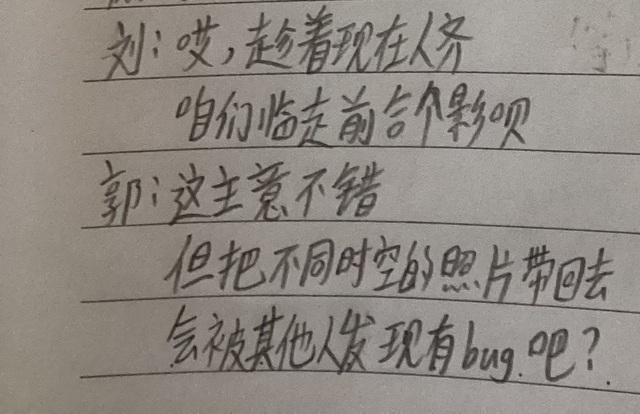 刘：哎，趁着现在人齐
咱们临走前合个影呗
郭：这主意不错
但把不同时空的照片带回去
会被其他人发现有bug.吧？